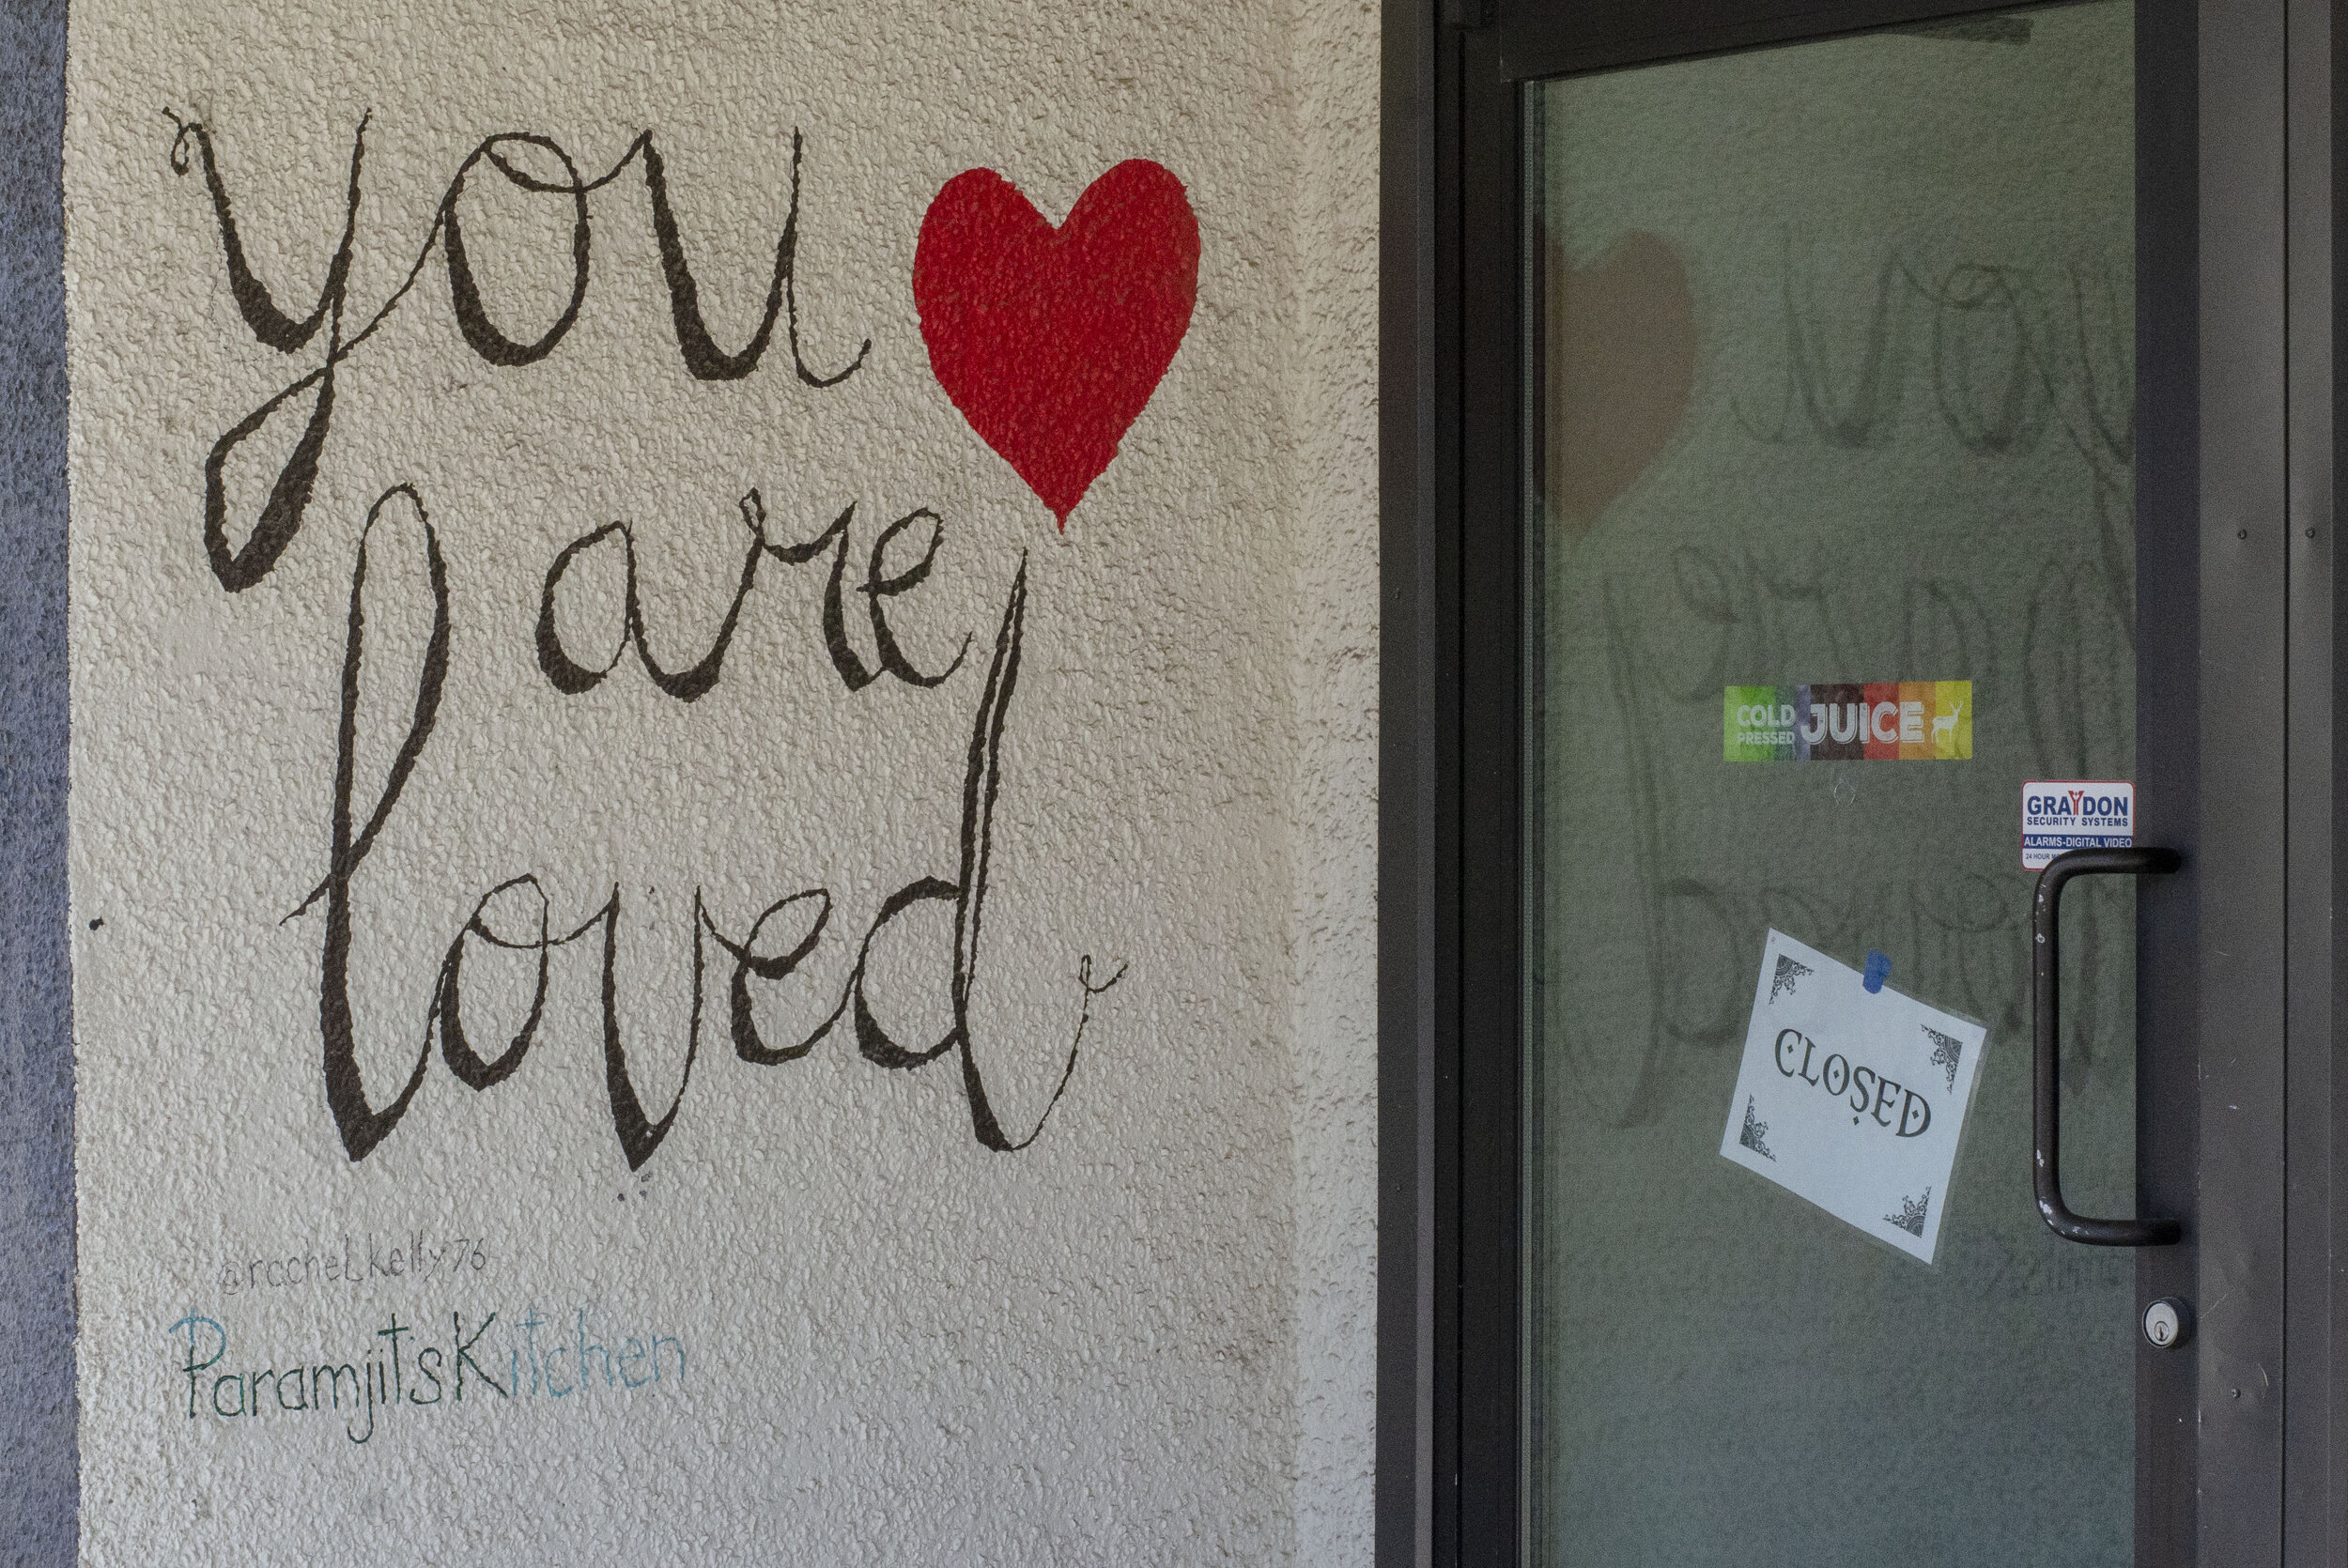 you
are
loved
@rachelkelly76
Paramjit'sKitchen
COLD
PRESSED
JUICE
GRAYDON
SECURITY SYSTEMS
ALARMS-DIGITAL VIDEO
24 HOUR
CLOSED